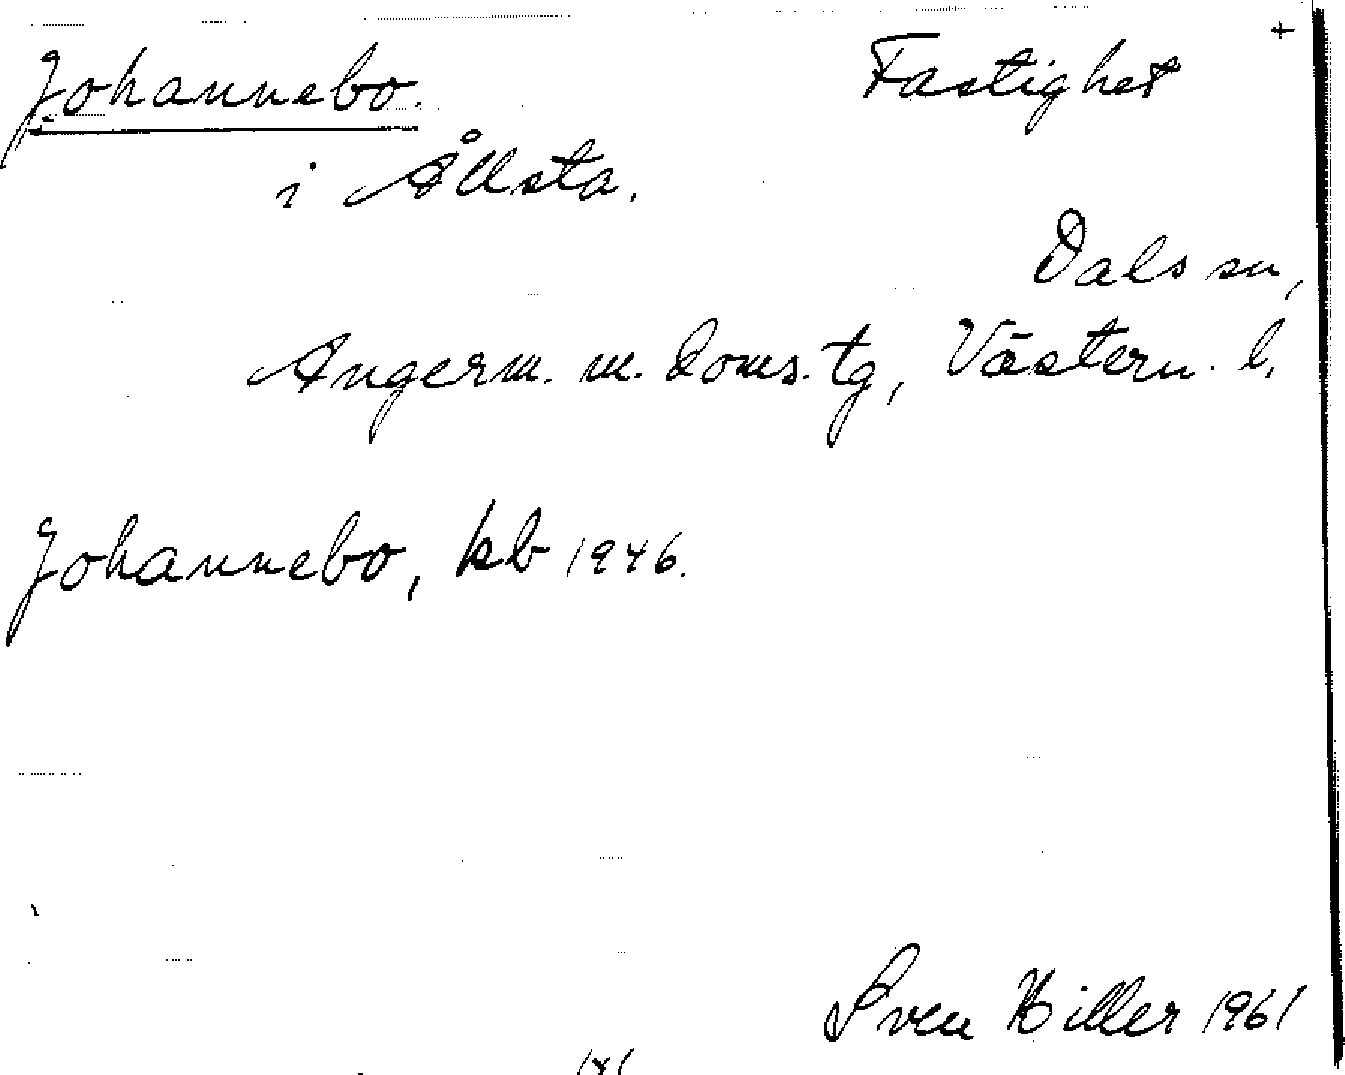 Johannebo. Fastighet +
i Ållsta.
Dals sn,
Angerm. m. doms. tg, Västern. l.
Johannebo, kb 1946.
Sven Hiller 1961